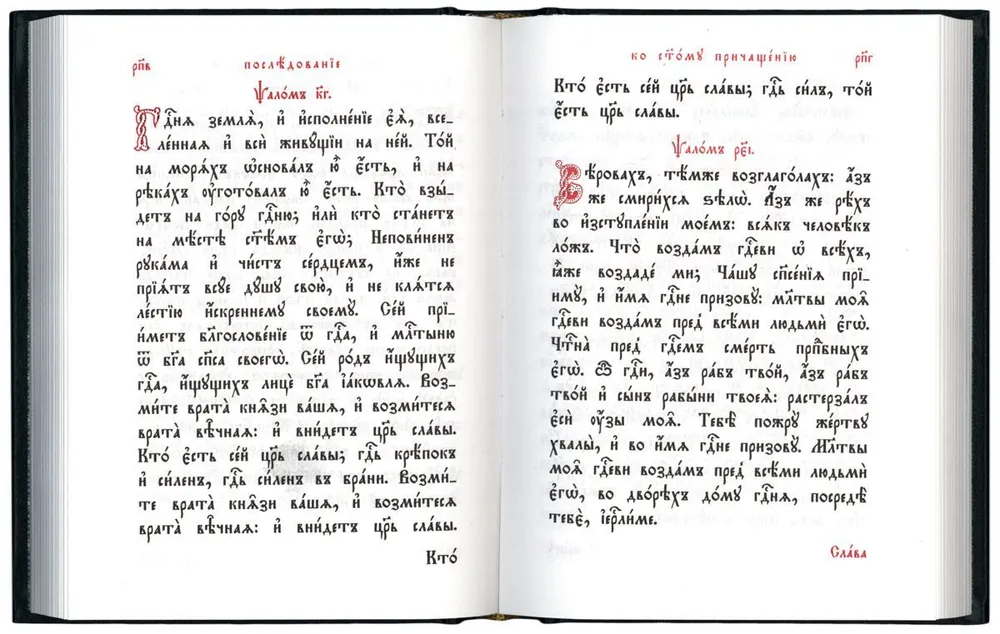 рп҃в
послѣ́дованїе
Ѱало́мъ к҃г.
Гдⷭ҇ня землѧ̀, и҆ и҆сполне́нїе є҆ѧ̀, все-
ле́нная и҆ всѝ живꙋ́щїи на не́й. То́й
на морѧ́хъ ѡ҆снова́лъ ю҆̀ є҆́сть, и҆ на
рѣка́хъ ᲂу҆гото́валъ ю҆̀ є҆́сть. Кто̀ взы́-
детъ на го́рꙋ гдⷭ҇ню; и҆лѝ кто̀ ста́нетъ
на мѣ́стѣ ст҃ѣ́мъ є҆гѡ̀; Непови́ненъ
рꙋка́ма и҆ чи́стъ се́рдцемъ, и҆́же не
прїѧ́тъ всꙋ́е дꙋ́шꙋ свою̀, и҆ не клѧ́тся
ле́стїю и҆́скреннемꙋ своемꙋ̀. Се́й прї-
и́метъ бл҃гослове́нїе ѿ гдⷭ҇а, и҆ мл҃тыню
ѿ бг҃а сп҃са своегѡ̀. Се́й ро́дъ и҆́щꙋщихъ
гдⷭ҇а, и҆́щꙋщихъ лицѐ бг҃а і҆а́кѡвля. Воз-
ми́те врата̀ кнѧ̑зи ва́шя, и҆ возми́теся
врата̀ вѣ̑чная: и҆ вни́детъ цр҃ь сла́вы.
Кто̀ є҆́сть се́й цр҃ь сла́вы; гдⷭ҇ь крѣ́покъ
и҆ си́ленъ, гдⷭ҇ь си́ленъ въ бра́ни. Возми́-
те врата̀ кнѧ̑зи ва́шя, и҆ возми́теся
врата̀ вѣ̑чная: и҆ вни́детъ цр҃ь сла́вы.
Кто̀
ко ст҃о́мꙋ причаще́нїю
рп҃г
Кто̀ є҆́сть се́й цр҃ь сла́вы; гдⷭ҇ь си́лъ, то́й
є҆́сть цр҃ь сла́вы.
Ѱало́мъ ре҃і.
Вѣ́ровахъ, тѣ́мже возглаго́лахъ: а҆́зъ
же смири́хся ѕѣлѡ̀. А҆́зъ же рѣ́хъ
во и҆зстꙋпле́нїи мое́мъ: всѧ́къ человѣ́къ
ло́жъ. Что̀ возда́мъ гдⷭ҇еви ѡ҆ всѣ́хъ,
ꙗ҆̀же воздаде́ ми; Ча́шꙋ сп҃се́нїя прї-
имꙋ̀, и҆ и҆́мя гдⷭ҇не призовꙋ̀: мл҃твы моѧ̑
гдⷭ҇еви возда́мъ пред̾ всѣ́ми людьмѝ є҆гѡ̀.
Чⷭ҇тна̀ пред̾ гдⷭ҇емъ сме́рть прпⷣбныхъ
є҆гѡ̀. Ѽ гдⷭ҇и, а҆́зъ ра́бъ тво́й, а҆́зъ ра́бъ
тво́й и҆ сы́нъ рабы́ни твоея̀: растерза́лъ
є҆сѝ ᲂу҆́зы моѧ̑. Тебѣ̀ пожрꙋ̀ же́ртвꙋ
хвалы̀, и҆ во и҆́мя гдⷭ҇не призовꙋ̀. Мл҃твы
моѧ̑ гдⷭ҇еви возда́мъ пред̾ всѣ́ми людьмѝ
є҆гѡ̀, во дво́рѣхъ до́мꙋ гдⷭ҇ня, посредѣ̀
тебє̀, і҆ерⷭ҇ли́ме.
Сла́ва